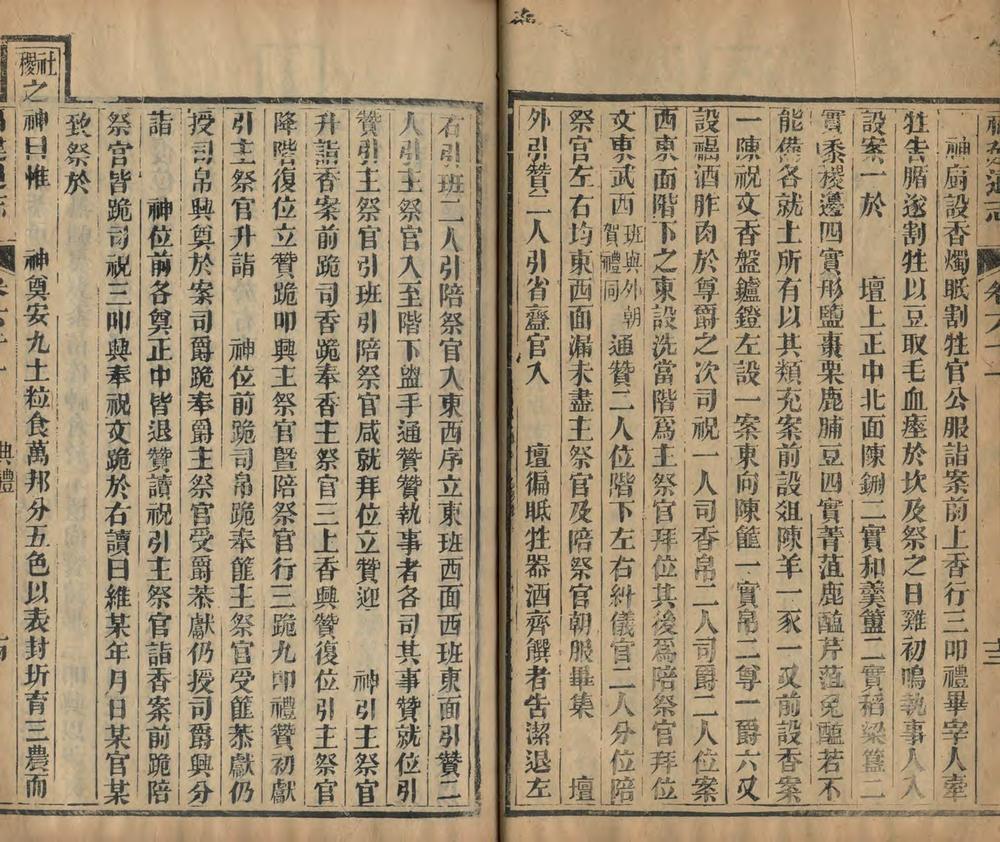 神廚設香燭眂割牲官公服詣案前上香行三叩禮畢宰人牽
牲告腯遂割牲以豆取毛血瘞於坎及祭之日雞初鳴執事人入
設案一於 壇上正中北面陳鉶二實和羹簠二實稻粱簋二
實黍稷籩四實形鹽棗栗鹿脯豆四實菁菹鹿醢芹菹兔醢若不
能備各就土所有以其類充案前設俎陳羊一豕一又前設香案
一陳祝文香盤鑪鐙左設一案東向陳篚一實帛二尊一爵六又
設福酒胙肉於尊爵之次司祝一人司香帛二人司爵二人位案
西東面階下之東設洗當階爲主祭官拜位其後爲陪祭官拜位
文東武西班與外朝賀禮同通贊二人位階下左右糾儀官二人分位陪
祭官左右均東西面漏未盡主祭官及陪祭官朝服畢集 壇
外引贊二人引省齍官入 壇徧眂牲器酒齊饌者告潔退左
右引班二人引陪祭官入東西序立東班西面西班東面引贊二
人引主祭官入至階下盥手通贊贊執事者各司其事贊就位引
贊引主祭官引班引陪祭官咸就拜位立贊迎 神引主祭官
升詣香案前跪司香跪奉香主祭官三上香興贊復位引主祭官
降階復位立贊跪叩興主祭官曁陪祭官行三跪九叩禮贊初獻
引主祭官升詣 神位前跪司帛跪奉篚主祭官受篚恭獻仍
授司帛興奠於案司爵跪奉爵主祭官受爵恭獻仍授司爵興分
詣 神位前各奠正中皆退贊讀祝引主祭官詣香案前跪陪
祭官皆跪司祝三叩興奉祝文跪於右讀曰維某年月日某官某
致祭於
社稷之神曰惟 神奠安九土粒食萬邦分五色以表封圻育三農而
典禮